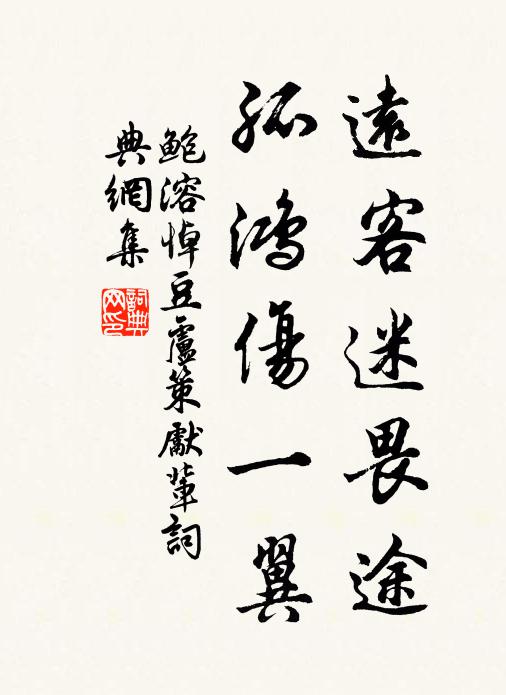 遠客迷畏途
孤鴻傷一翼
鮑溶悼豆盧策獻輩詞
典網集
詞典網印